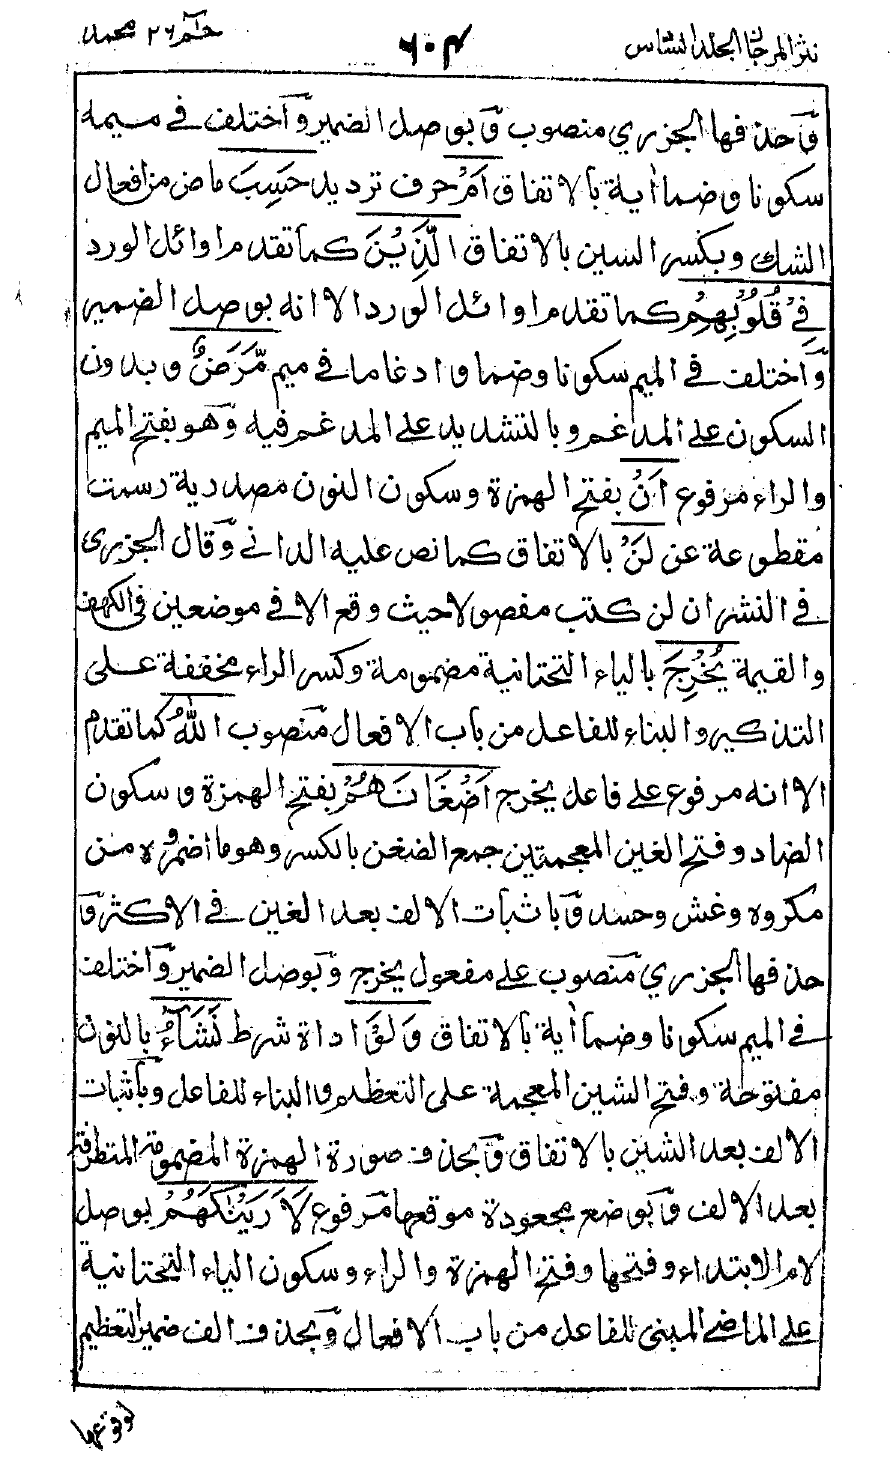 نثر المرجان الجلد السادس ٦٠٤ حٰم ٢٦ محمد
وَحذفها الجزري منصوب وَبوصل الضمير وَاختلف في ميمه
سكونا وضما اٰية بالاتفاق اَمْ حرف ترديد حَسِبَ ماض من افعال
الشك وبكسر السين بالاتفاق الَّذِيْنَ كما تقدم اوائل الورد
فِيْ قُلُوْبِهِمْ كما تقدم اوائل الورد الا انه بوصل الضمير
وَاختلف في الميم سكونا وضما وادغاما في ميم مَّرَضٌ وبدون
السكون على المدغم وبالتشديد على المدغم فيه وَهو بفتح الميم
والراء مرفوع اَنْ بفتح الهمزة وسكون النون مصدرية رسمت
مقطوعة عن لَنْ بالاتفاق كما نص عليه الداني وَقال الجزرى
في النشر ان لن كتب مفصولا حيث وقع الا في موضعين في الكهف
والقيمة يُخْرِجَ بالياء التحتانية مضمومة وكسر الراء مخففة على
التذكير والبناء للفاعل من باب الافعال منصوب اللّٰهُ كما تقدم
الا انه مرفوع على فاعل يخرج اَضْغَانَهُمْ بفتح الهمزة وسكون
الضاد وفتح الغين المعجمتين جمع الضغن بالكسر وهو ما اضمروه من
مكروه وغش وحسد وَباثبات الالف بعد الغين في الاكثر وَ
حذفها الجزري منصوب على مفعول يخرج وَبوصل الضمير وَاختلف
في الميم سكونا وضما اٰية بالاتفاق وَلَوْ اداة شرط نَشَآءُ بالنون
مفتوحة وفتح الشين المعجمة على التعظيم والبناء للفاعل وَباثبات
الالف بعد الشين بالاتفاق وَبحذف صورة الهمزة المضمومة المتطرفة
بعد الالف وَبوضع مجعودة موقعها مرفوع لَاَرَيْنٰكَهُمْ بوصل
لام الابتداء وفتحها وفتح الهمزة والراء وسكون الياء التحتانية
على الماضي المبني للفاعل من باب الافعال وَبحذف الف ضمير التعظيم
لوقوعها